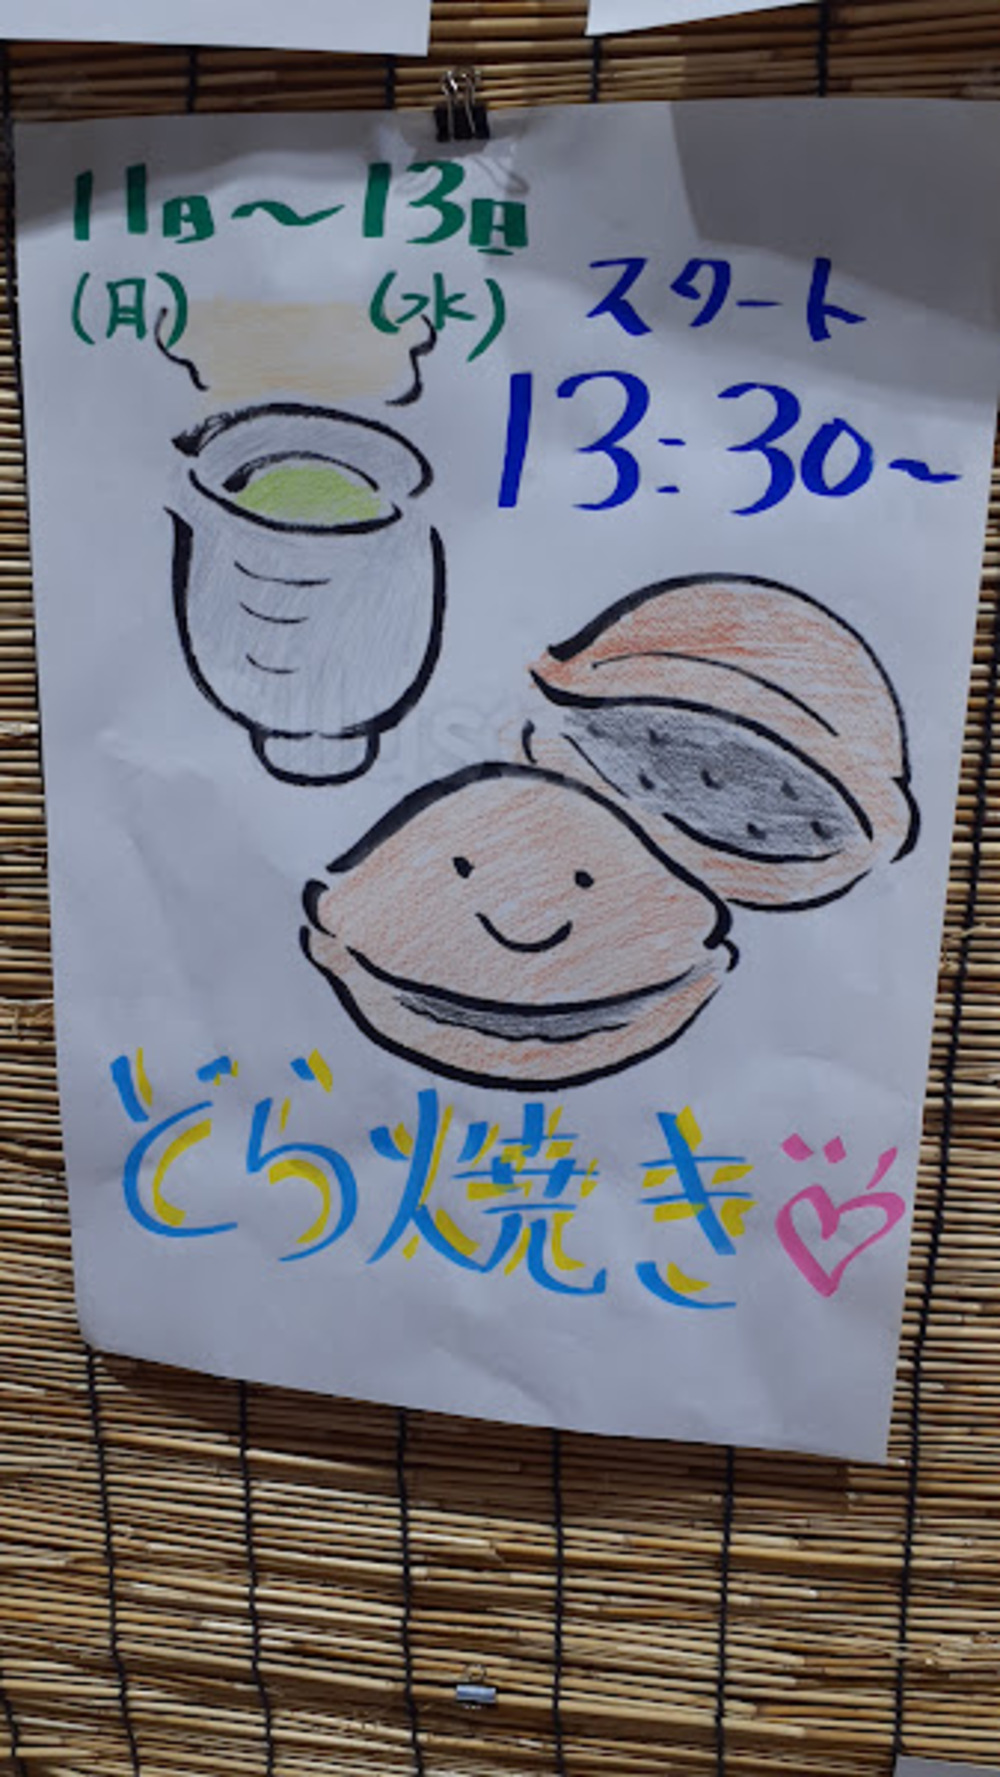 11日〜13日
(月) (水)
スタート
13:30〜
どら焼き♡